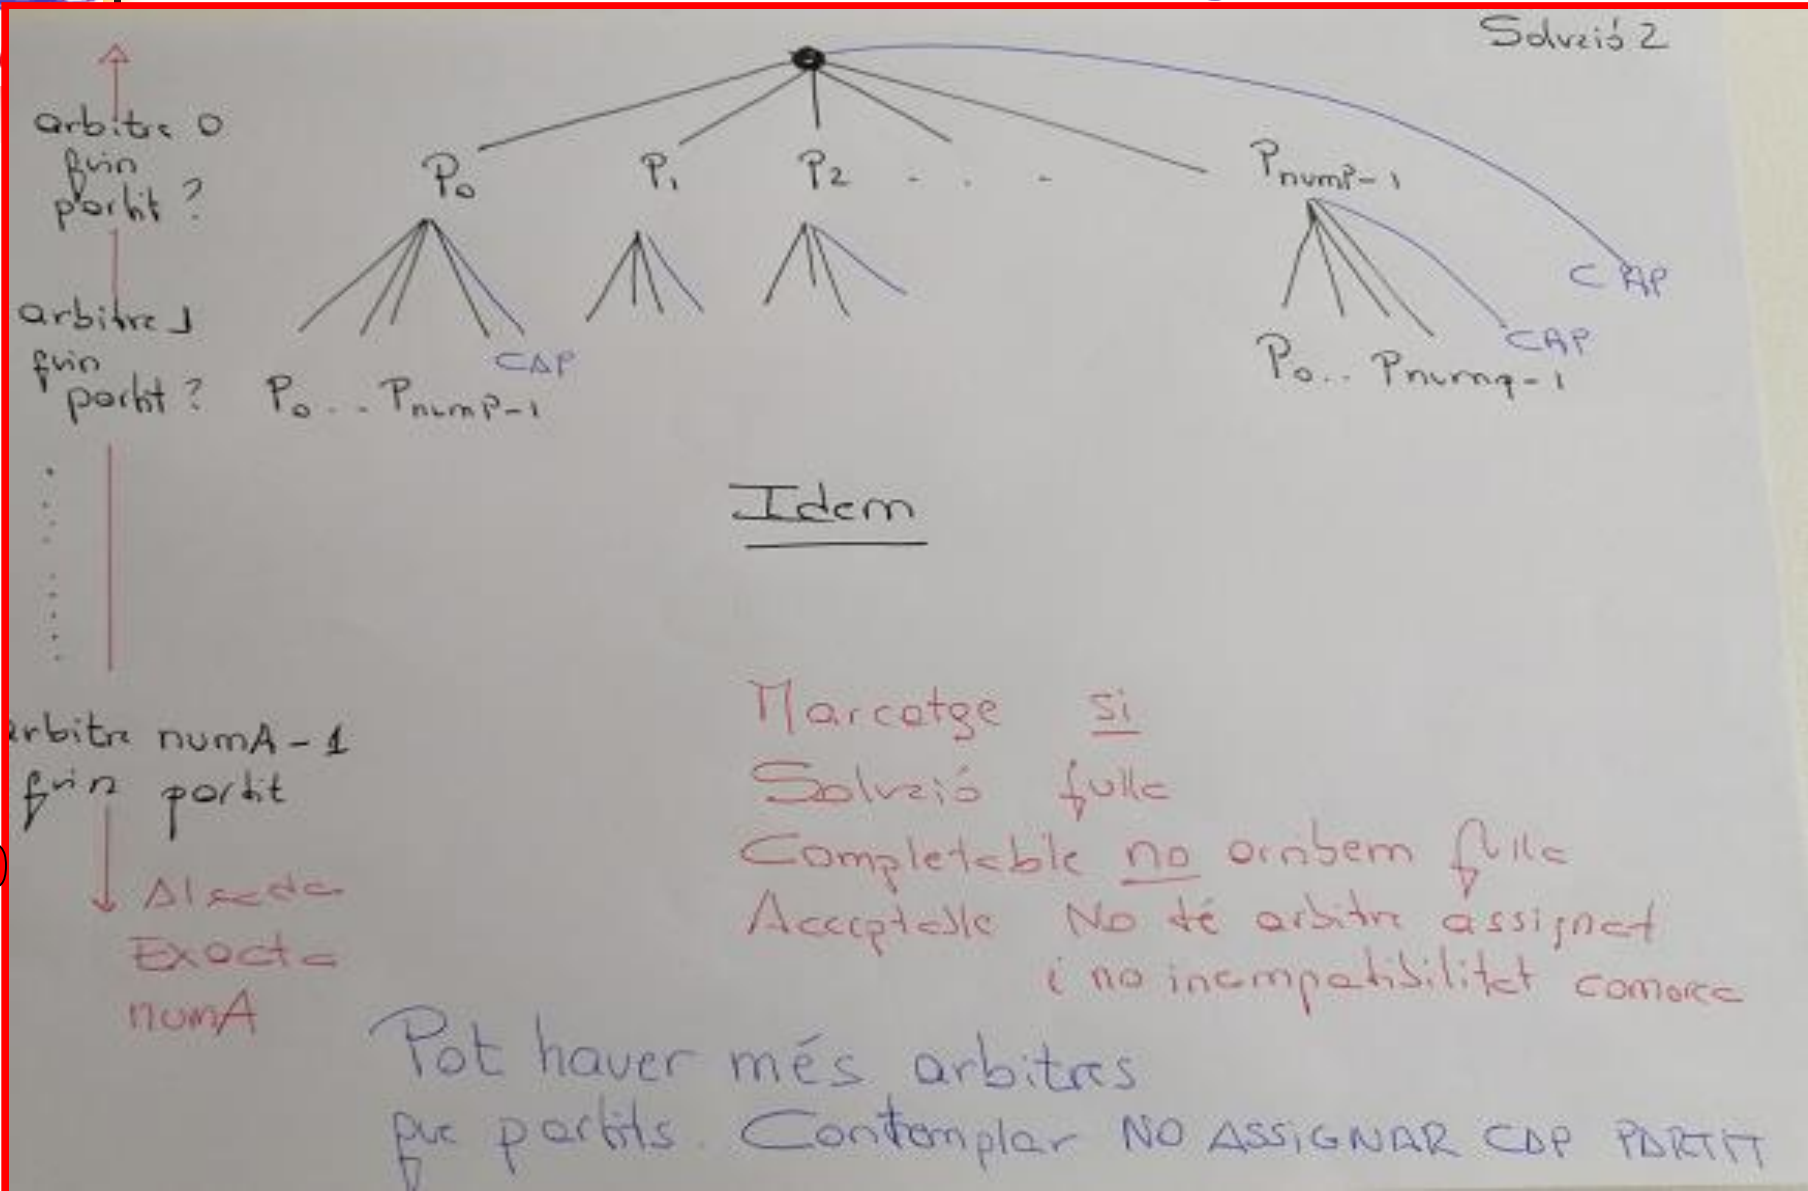 Solució 2
arbitre 0
quin
partit ?
P0 P1 P2 . . . PnumP-1
CAP
arbitre 1
quin
partit ?
CAP
CAP
P0 ... PnumP-1
P0 .. Pnumq-1
Idem
arbitre numA-1
quin partit
Alçada
Exacta
numA
Marcatge si
Solució fulla
Completable no arribem fulla
Acceptable No té arbitre assignat
i no incompatibilitat comarca
Pot haver més arbitres
que partits. Contemplar NO ASSIGNAR CAP PARTIT